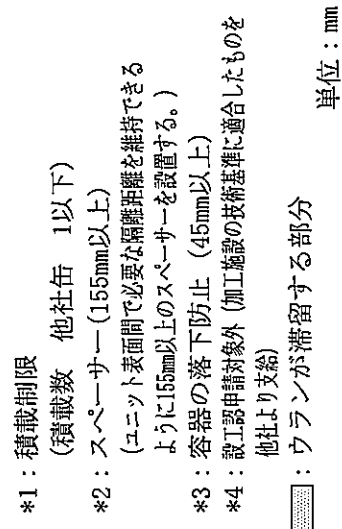 *1：積載制限
(積載数　他社缶　1以下)
*2：スペーサー(155mm以上)
(ユニット表面間で必要な隔離距離を維持できる
ように155mm以上のスペーサーを設置する。)
*3：容器の落下防止 (45mm以上)
*4：設工認申請対象外 (加工施設の技術基準に適合したものを
他社より支給)
：ウランが滞留する部分
単位：mm